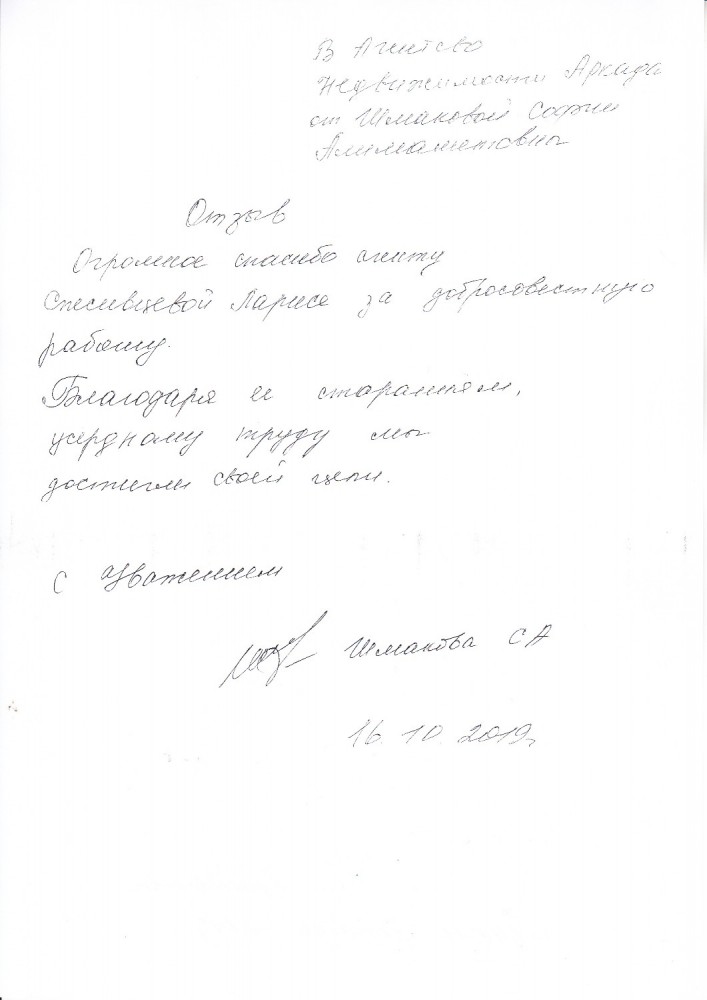 В Агентсво
Недвижимости Аркада
от Шмаковой Софии
Алимаметовны
Отзыв
Огромное спасибо агенту
Спесивцевой Ларисе за добросовестную
работу.
Благодаря ее стараниям,
усердному труду мы
достигли своей цели.
С уважением
Шмакова С А
16.10.2019г